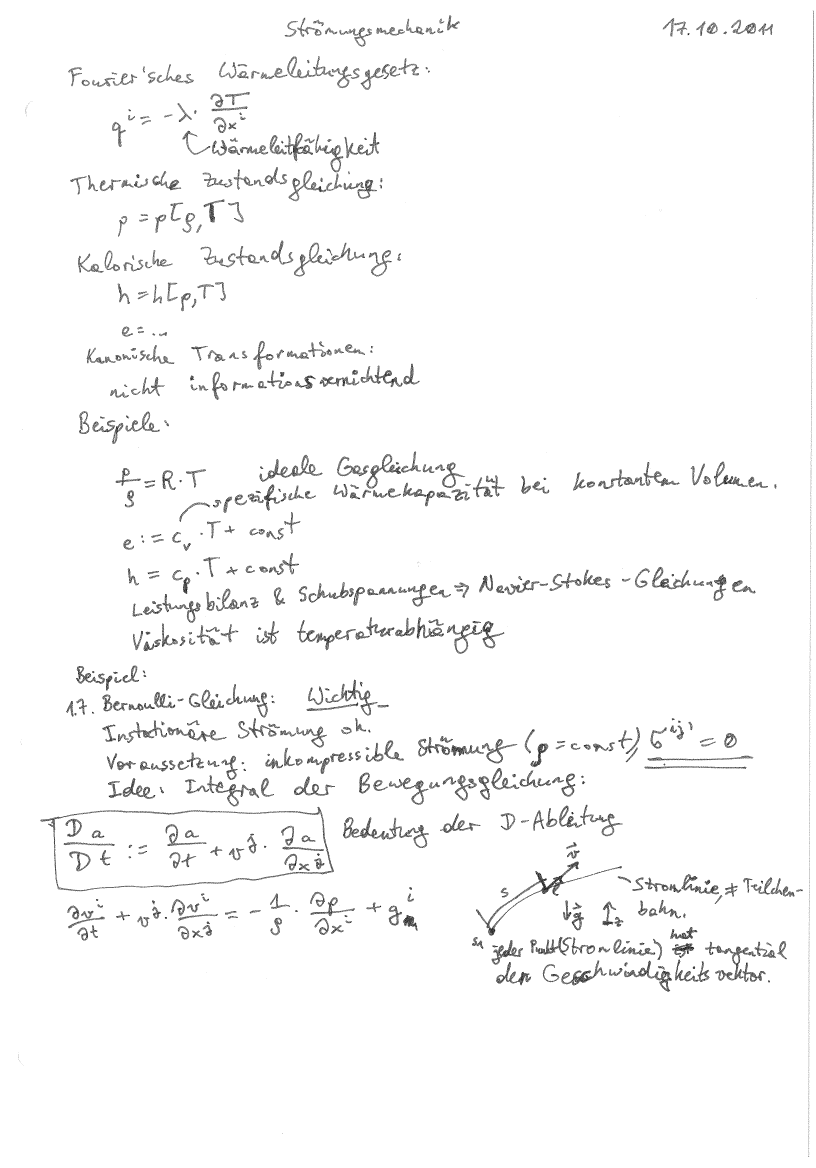 Strömungsmechanik 17.10.2011
Fourier'sches Wärmeleitungsgesetz:
q^i = -λ · ∂T/∂x^i
Wärmeleitfähigkeit
Thermische Zustandsgleichung:
p = p[ρ,T]
Kalorische Zustandsgleichung:
h = h[p,T]
e = ...
Kanonische Transformationen:
nicht informationsvernichtend
Beispiele:
p/ρ = R·T ideale Gasgleichung
spezifische Wärmekapazität bei konstantem Volumen.
e := c_v · T + const
h = c_p · T + const
Leistungsbilanz & Schubspannungen ⇒ Navier-Stokes-Gleichungen
Viskosität ist temperaturabhängig
Beispiel:
1.7. Bernoulli-Gleichung: Wichtig
Instationäre Strömung ok.
Voraussetzung: inkompressible Strömung (ρ = const), σ^ij' = 0
Idee: Integral der Bewegungsgleichung:
Da/Dt := ∂a/∂t + v^j · ∂a/∂x^j Bedeutung der D-Ableitung
∂v^i/∂t + v^j · ∂v^i/∂x^j = -1/ρ · ∂p/∂x^i + g^i
v⃗
s
Stromlinie, ≠ Teilchen-
bahn.
g⃗ z
s₁
jeder Punkt (Stromlinie) hat tangential
den Geschwindigkeitsvektor.